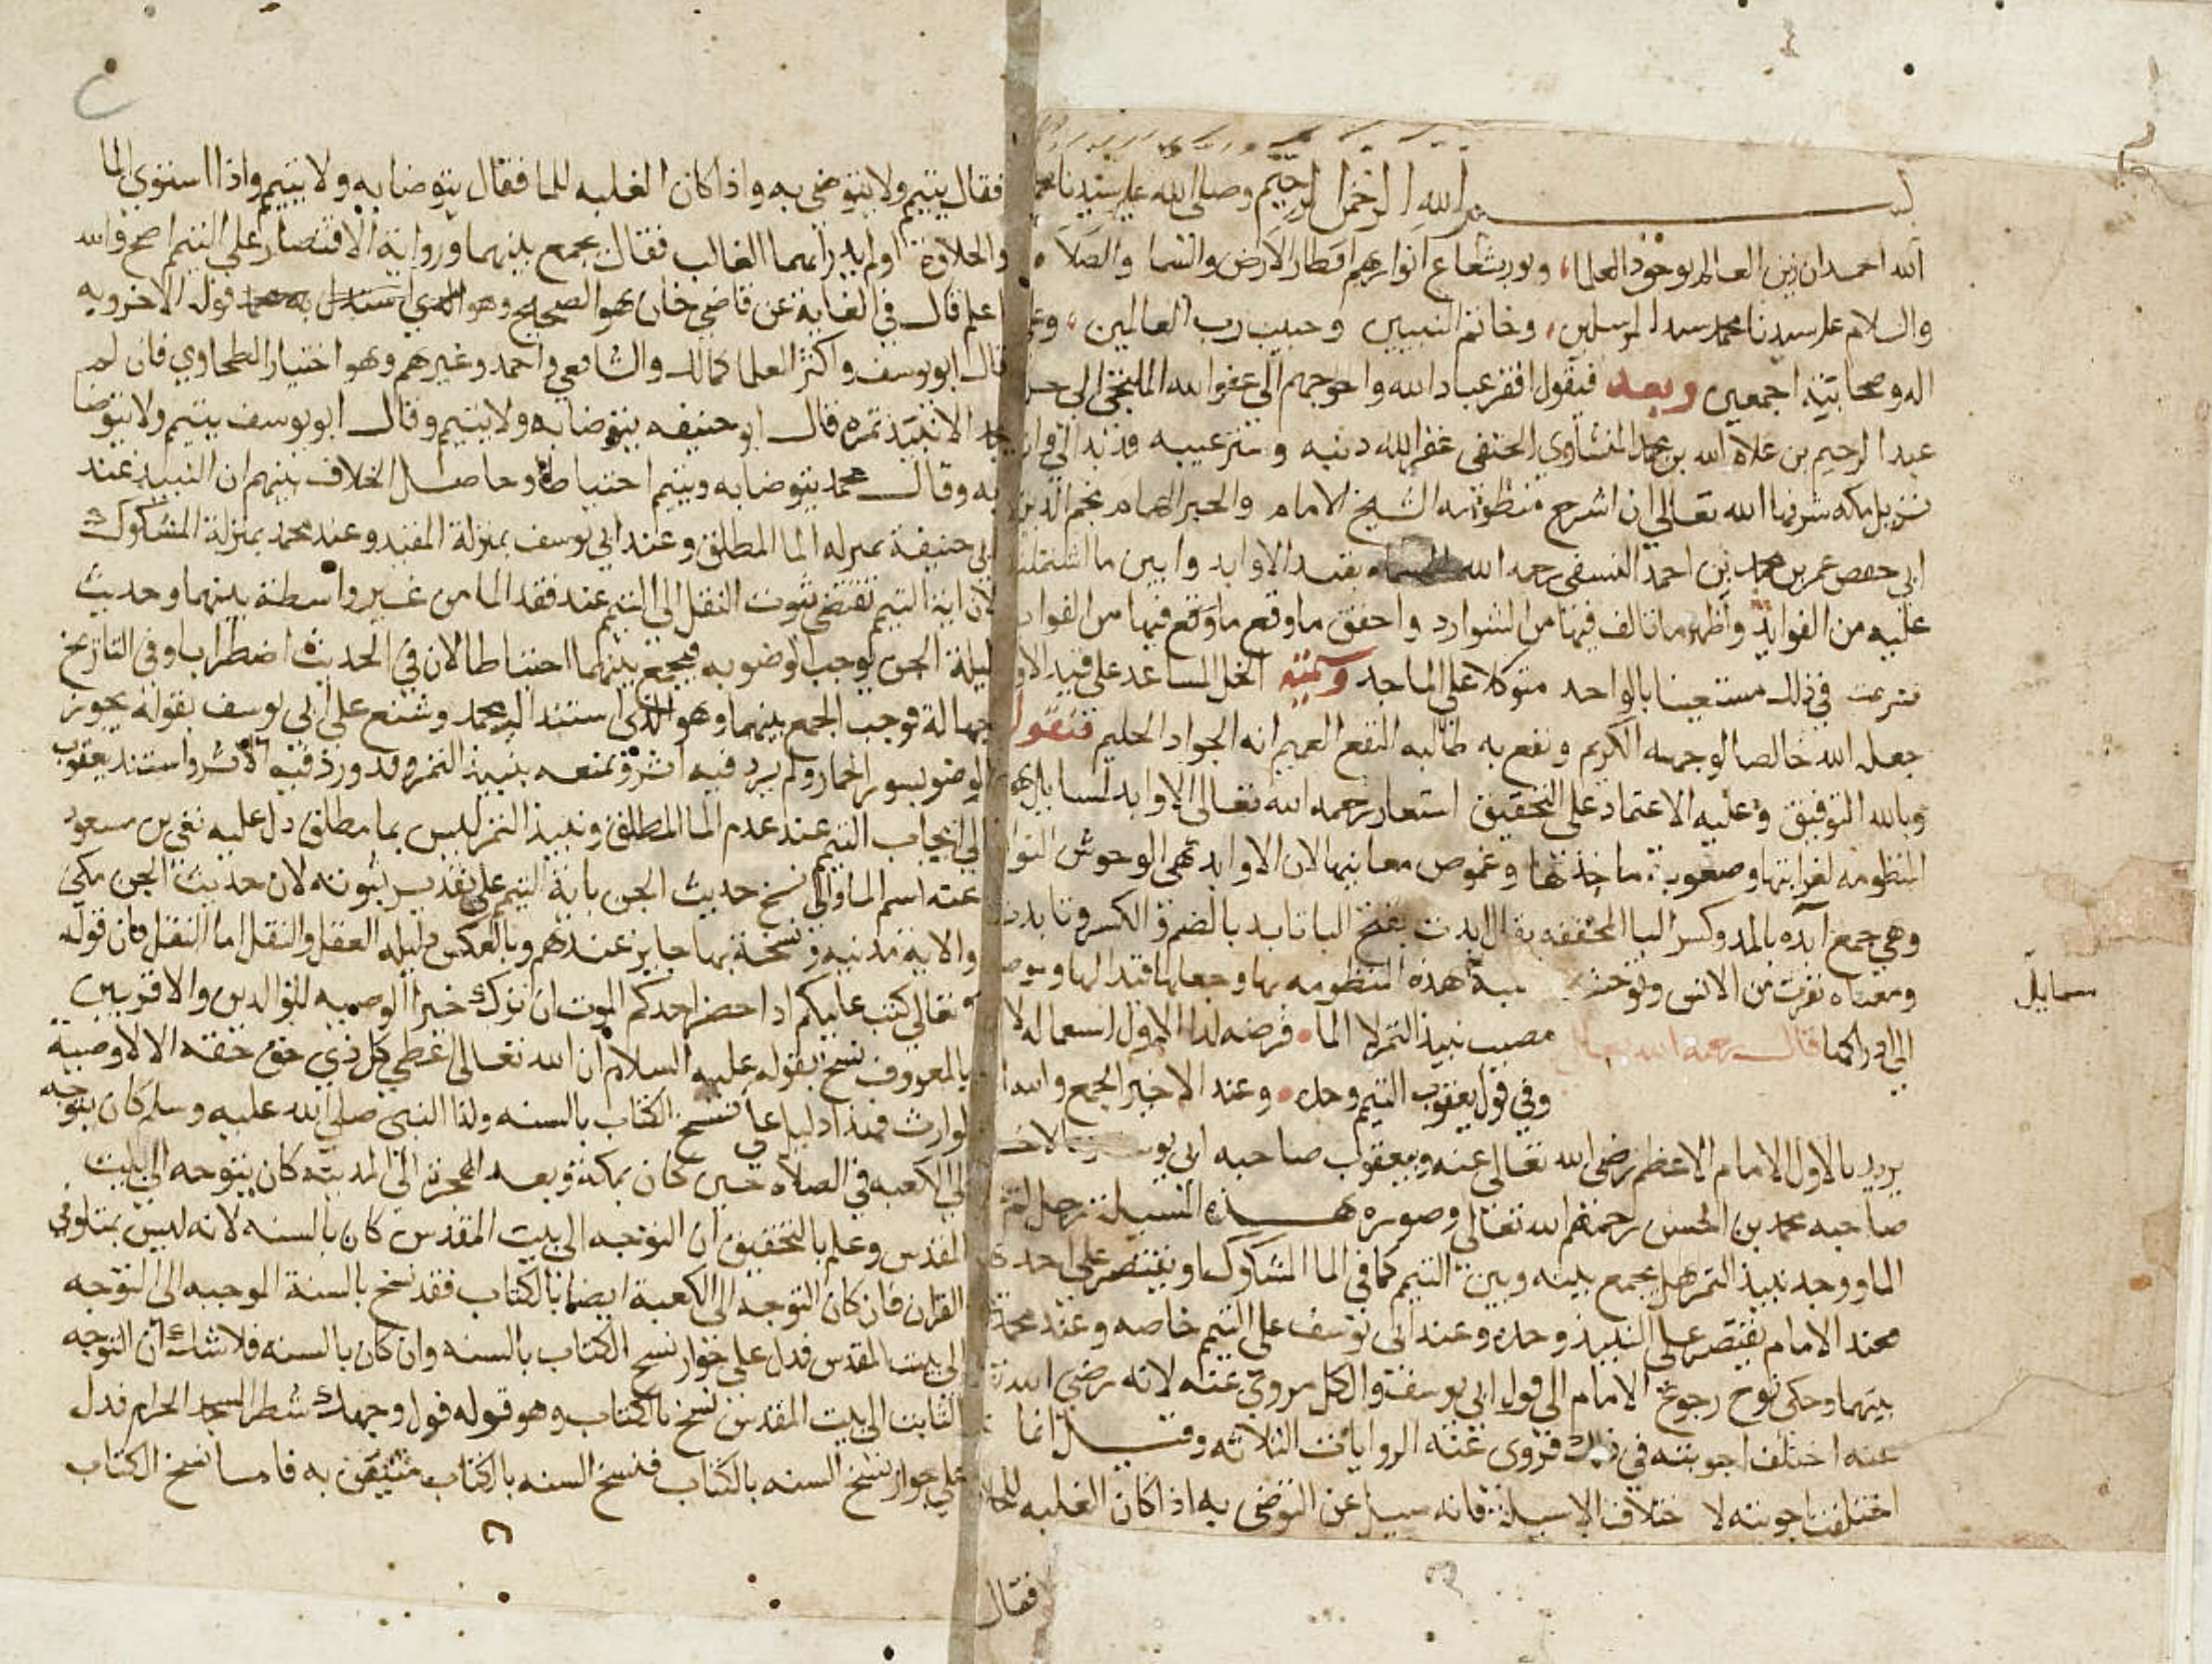 بسم الله الرحمن الرحيم وصلى الله على سيدنا محمد
الله احمد ان زين العالم بوجود العلماء ونور بشعاع انوارهم اقطار الارض والسما والصلاة
والسلام على سيدنا محمد سيد المرسلين وخاتم النبيين وحبيب رب العالمين وعلى
اله وصحابته اجمعين وبعد فيقول افقر عباد الله واحوجهم الى عفو الله الملتجئ الى حرم
عبد الرحيم بن علاه الله بن محمد المنشاوي الحنفي غفر الله ذنبه وستر عيبه قد بدا لي وانا
نزيل مكه شرفها الله تعالى ان اشرح منظومة الشيخ الامام والحبر الهمام نجم الدين
ابي حفص عمر بن محمد بن احمد النسفي رحمه الله بقيد الاوابد وابين ما اشتملت
عليه من الفوايد واظهر ما تالف فيها من الشوارد واحقق ما وقع ما وقع فيها من
فشرعت في ذلك مستعينا بالواحد متوكلا على الماجد وسميته الخل المساعد على قيد الاوابد
جعله الله خالصا لوجهه الكريم ونفع به طالبه النفع العميم انه الجواد الحليم فنقول
وبالله التوفيق وعليه الاعتماد على التحقيق استعار رحمه الله تعالى الاوابد لمسايل هذه
المنظومه لغرابتها وصعوبة ماخذها وغموص معانيها لان الاوابد هي الوحوش النوافر
وهي جمع آبده بالمد وكسر البا المخففه يقال ابدت بفتح البا تابد بالضم والكسر وتابدت
ومعناه نفرت من الانس وتوحشت هذه المنظومه بها وجعلها قيدا لها
الى ادراكها قال رحمه الله تعالى مصيب نبيذ التمر لا الماء فرضه لدا الاول استعماله لا
سمايل
وفي قول يعقوب التيمم وحده وعند الاخير الجمع والله
يريد بالاول الامام الاعظم رضي الله تعالى عنه وبيعقوب صاحبه ابي يوسف
صاحبه محمد بن الحسن رحمهم الله تعالى وصوره هذه المسيلة رجل لم
الما ووجد نبيذ التمر هل يجمع بينه وبين التيمم كما في الما المشكوك او يقتصر على احدهما
فعند الامام يقتصر على النبيذ وحده وعند ابي يوسف على التيمم خاصه وعند محمد
بينهما وحكى نوح رجوع الامام الى قول ابي يوسف والكل مروي عنه لانه رضي الله
عنه اختلف اجوبته في ذلك فروى عنه الروايات الثلاثه وقيل انما
اختلفت اجوبته لاختلاف الاسيلة فانه سيل عن التوضي به اذا كان الغلبه للحلاوة
فقال
فقال يتيمم ولا يتوضى به واذا كان الغلبه للما فقال يتوضا به ولا يتيمم واذا استوى الما
والحلاوة او لم يدر ايهما الغالب فقال يجمع بينهما ورواية الاقتصار على التيمم اصح والله
اعلم قال في الغاية عن قاضي خان هو الصحيح وهو قول الاخر وبه
قال ابو يوسف واكثر العلما كمالك والشافعي واحمد وغيرهم وهو اختيار الطحاوي فان لم
يجد الا نبيذ تمره قال ابو حنيفه يتوضا به ولا يتيمم وقال ابو يوسف يتيمم ولا يتوضا
به وقال محمد يتوضا به ويتيمم احتياطا وحاصل الخلاف بينهم ان النبيذ عند
ابي حنيفة بمنزله الما المطلق وعند ابي يوسف بمنزلة المقيد وعند محمد بمنزلة المشكوك
لان اية التيمم تقتضى ثبوت النقل الى التيمم عند فقد الما من غير واسطة بينهما وحديث
ليلة الجن يوجب الوضو به فيجمع بينهما احتياطا لان في الحديث اضطرابا وفي التاريخ
جهالة فوجب الجمع بينهما وهو الذي استند اليه محمد وشنع على ابي يوسف بقوله يجوز
الوضو بسور الحمار ولم يرد فيه اثر ويمنعه بنبيذ التمر وقد ورد فيه الاثر واستند يعقوب
الى ايجاب التيمم عند عدم الما المطلق ونبيذ التمر ليس بما مطلق دل عليه نفي بن مسعود
عنه اسم الما والى نسخ حديث الجن باية التيمم على تقدير ثبوته لان حديث الجن مكي
والاية مدنية ونسخه بها جايز عندهم وبالعكس دليله العقل والنقل اما النقل فان قوله
تعالى كتب عليكم اذا حضر احدكم الموت ان ترك خيرا الوصيه للوالدين والاقربين
بالمعروف نسخ بقوله عليه السلام ان الله تعالى اعطى كل ذي حق حقه الا لا وصية
لوارث فهذا دليل على نسخ الكتاب بالسنه ولذا النبي صلى الله عليه وسلم كان يتوجه
الى الكعبه في الصلاة حين كان بمكة وبعد الهجرة الى المدينه كان يتوجه الى بيت
المقدس وعلم بالتحقيق ان التوجه الى بيت المقدس كان بالسنه لانه ليس بمتلو في
القران فان كان التوجه الى الكعبة ايضا بالكتاب فقد نسخ بالسنة الموجبه الى التوجه
الى بيت المقدس فدل على جواز نسخ الكتاب بالسنه وان كان بالسنه فلا شك ان التوجه
الثابت الى بيت المقدس نسخ بالكتاب وهو قوله فول وجهك شطر المسجد الحرام فدل
على جواز نسخ السنه بالكتاب فنسخ السنه بالكتاب متيقن به فاما نسخ الكتاب